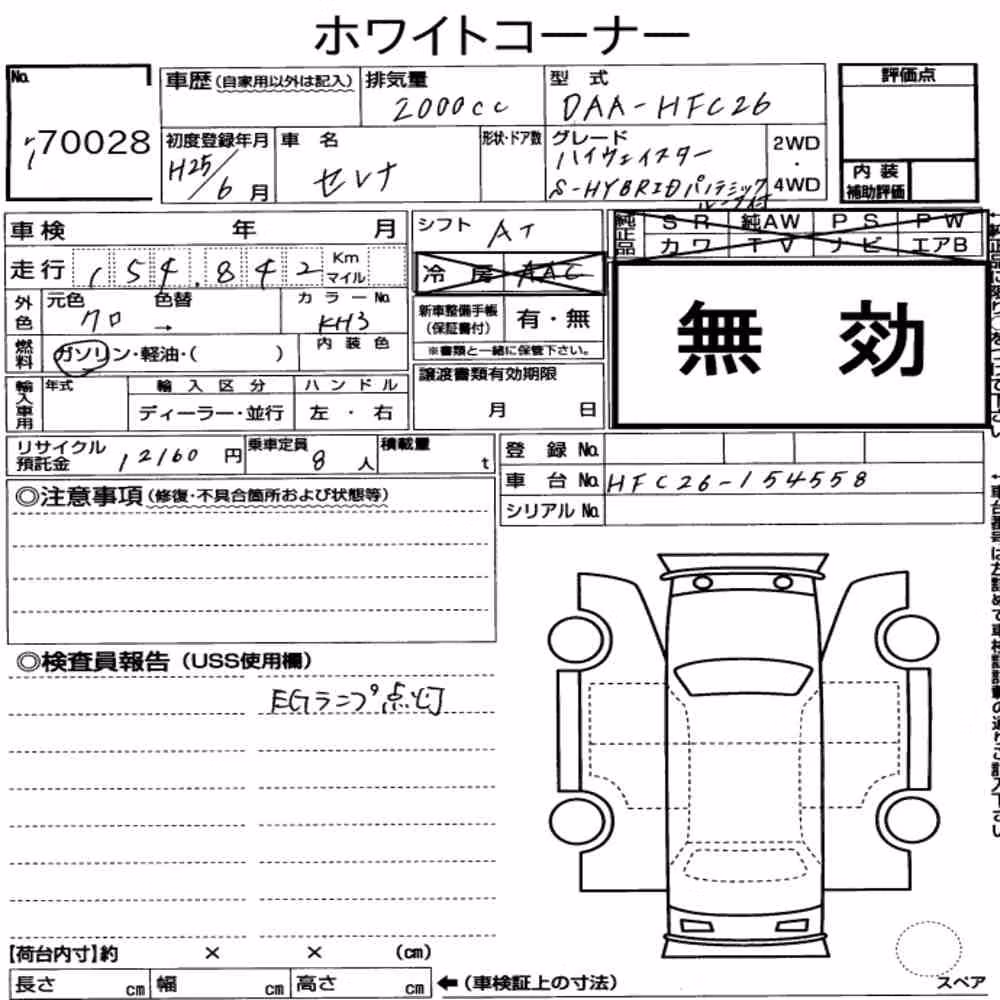 ホワイトコーナー
No.
70028
車歴(自家用以外は記入)
排気量
2000cc
型式
DAA-HFC26
評価点
初度登録年月
H25/6月
車名
セレナ
形状・ドア数
グレード
ハイウェイスター
S-HYBRIDパノラミック
ルーフ付
2WD
・
4WD
内装
補助評価
車検 年 月
走行 154,842 Km
マイル
シフト AT
冷房 AAC
純正品
SR 純AW PS PW
カワ TV ナビ エアB
無効
外色
元色 クロ
色替 →
カラーNo. KH3
新車整備手帳
(保証書付)
有・無
※書類と一緒に保管下さい。
燃料
ガソリン・軽油・( )
内装色
譲渡書類有効期限
月 日
輸入車用
年式
輸入区分
ディーラー・並行
ハンドル
左・右
リサイクル
預託金 12160円
乗車定員 8人
積載量 t
登録No.
車台No. HFC26-154558
シリアルNo.
◎注意事項(修復・不具合箇所および状態等)
◎検査員報告(USS使用欄)
EGランプ点灯
【荷台内寸】約 × × (cm)
長さ cm 幅 cm 高さ cm
←(車検証上の寸法)
スペア